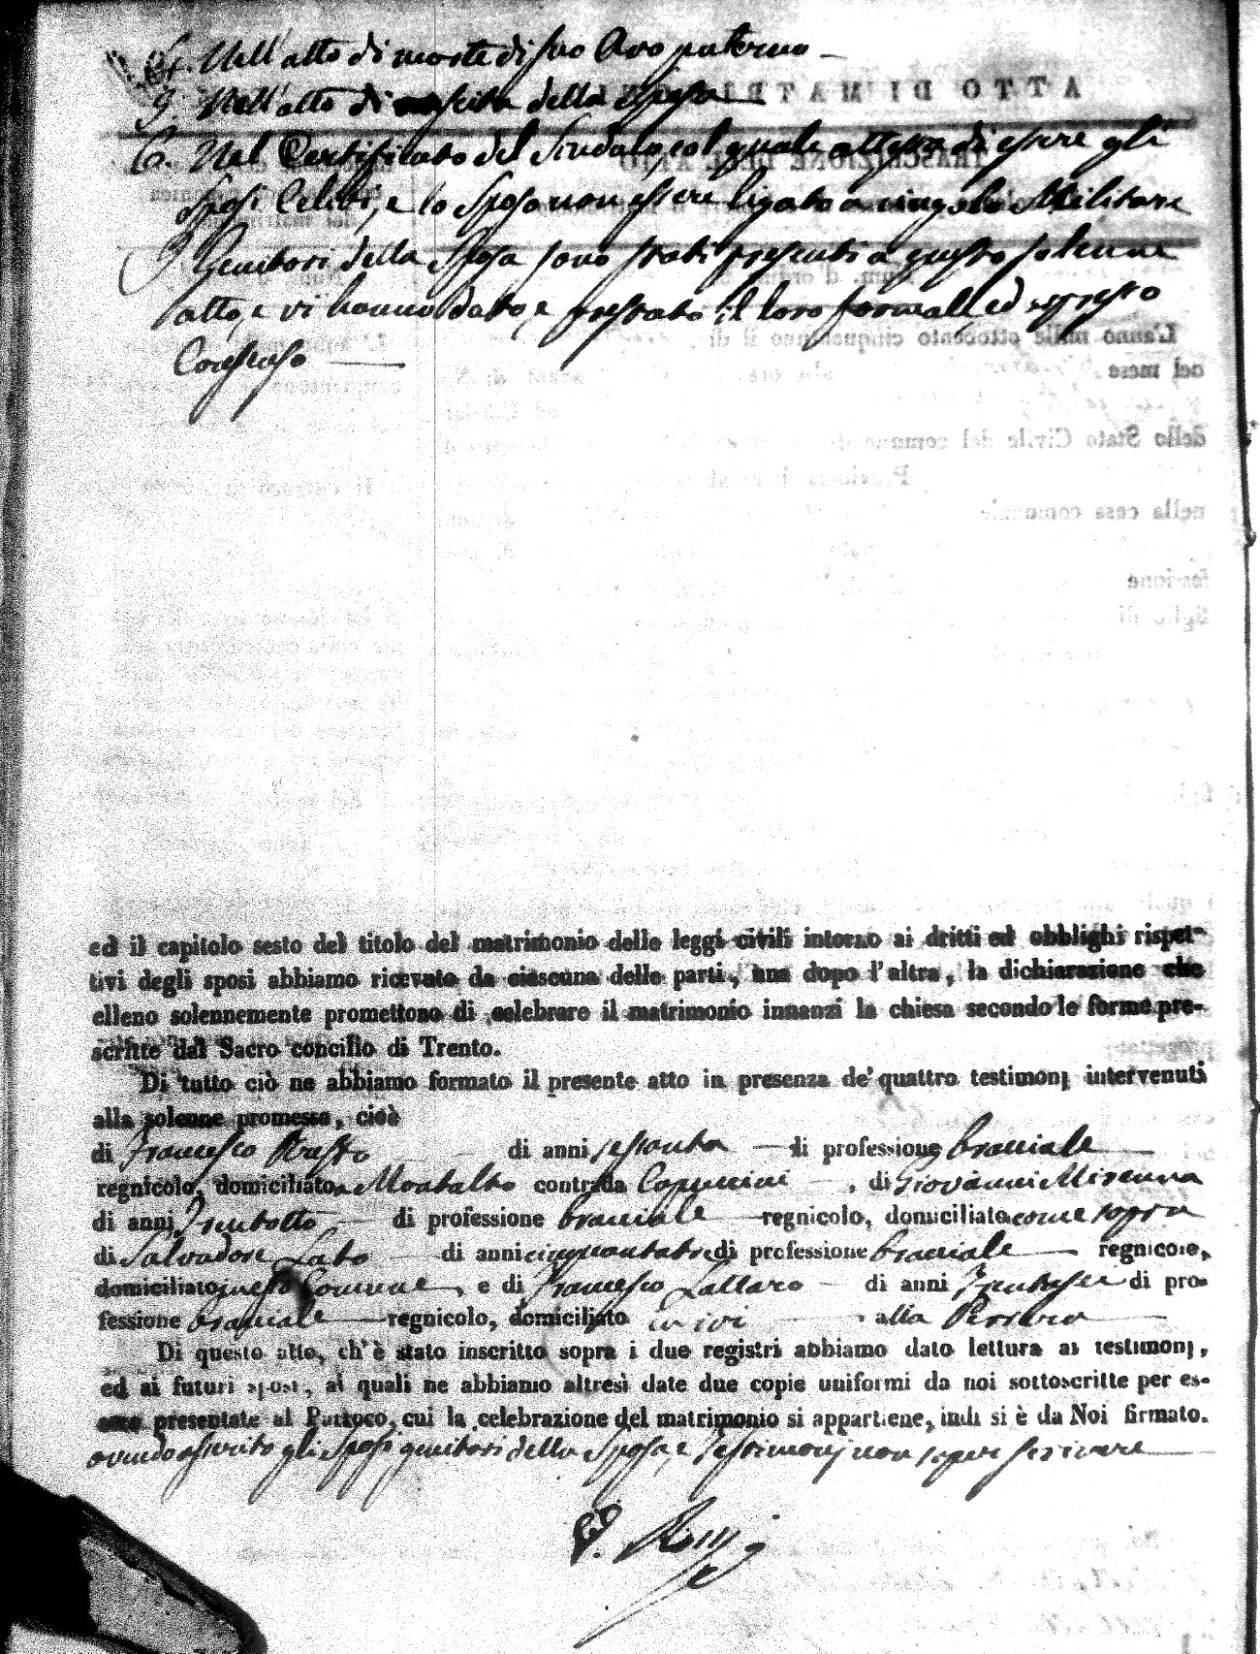 4. Nell'atto di morte di suo Avo paterno —
5. Nell'atto di nascita della sposa —
6. Nel Certificato del Sindaco, col quale attesta di essere gli
sposi Celibi, e lo Sposo non essere ligato a cingolo Militare
I Genitori della Sposa sono stati presenti a questo solenne
atto, e vi hanno dato, e prestato il loro formale ed espresso
Consenso —
ed il capitolo sesto del titolo del matrimonio delle leggi civili intorno ai dritti ed obblighi rispet-
tivi degli sposi abbiamo ricevuto da ciascuna delle parti, una dopo l'altra, la dichiarazione che
elleno solennemente promettono di celebrare il matrimonio innanzi la chiesa secondo le forme pre-
scritte dal Sacro concilio di Trento.
Di tutto ciò ne abbiamo formato il presente atto in presenza de' quattro testimonj intervenuti
alla solenne promessa, cioè
di Francesco di anni sessanta — di professione bracciale —
regnicolo, domiciliato a Montalto contrada Cappuccini —, di Giovanni Mirenna
di anni Trentotto — di professione bracciale — regnicolo, domiciliato come sopra
di Salvadore Lato — di anni cinquantatre di professione bracciale — regnicolo,
domiciliato in questo Comune, e di Francesco Lattaro — di anni Trentasei di pro-
fessione bracciale — regnicolo, domiciliato in ivi — alla
Di questo atto, ch'è stato inscritto sopra i due registri abbiamo dato lettura ai testimonj,
ed ai futuri sposi, ai quali ne abbiamo altresì date due copie uniformi da noi sottoscritte per es-
sere presentate al Parroco, cui la celebrazione del matrimonio si appartiene, indi si è da Noi firmato.
avendo asserito gli Sposi genitori della Sposa, e Testimonj non sapere scrivere —